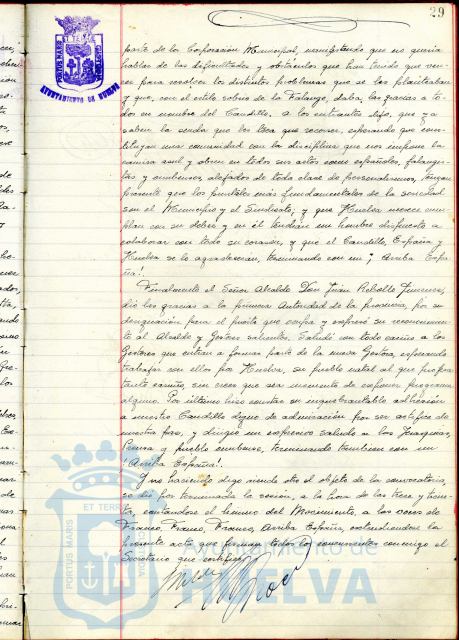 29
PORTUS MARIS ET TERRAE CUSTODIA
AYUNTAMIENTO DE HUELVA
parte de la Corporación Municipal, manifestando que no quería
hablar de las dificultades y obstáculos que han tenido que ven-
cer para resolver los distintos problemas que se les planteaban
y que, con el estilo sobrio de la Falange, daba las gracias a to-
dos en nombre del Caudillo. A los entrantes dijo, que ya
saben la senda que les toca que recorrer, esperando que cons-
tituyan una comunidad con la disciplina que nos impone la
camisa azul y obren en todos sus actos como españoles, falangis-
tas y onubenses, alejados de toda clase de personalismos, tengan
presente que los puntales más fundamentales de la sociedad
son el Municipio y el Sindicato, y que Huelva merece cum-
plan con su deber y en él tendrían un hombre dispuesto a
colaborar con todo su corazón, y que el Caudillo, España y
Huelva se lo agradecerán, terminando con un ¡Arriba Espa-
ña!
Finalmente el Señor Alcalde Don Juan Rebollo Jimenez,
dió las gracias a la primera Autoridad de la provincia, por su
designación para el puesto que ocupa y expresó su reconocimien-
to al Alcalde y Gestores salientes. Saludó con todo cariño a los
Gestores que entran a formar parte de la nueva Gestora, esperando
trabajar con ellos por Huelva, su pueblo natal al que profesa
tanto cariño, sin creer que sea momento de exponer programa
alguno. Por último hizo constar su inquebrantable adhesión
a nuestro Caudillo digno de admiración por ser artífice de
nuestra paz, y dirigió un expresivo saludo a las Jerarquías,
Prensa y pueblo onubense, terminando también con un
¡Arriba España!
Y no haciendo digo siendo otro el objeto de la convocatoria,
se dió por terminada la sesión, a la hora de las trece y trein-
ta, cantándose el himno del Movimiento, a las voces de
Franco, Franco, Franco, Arriba España, extendiéndose la
presente acta que firman todos los concurrentes conmigo el
Secretario que certifico.
PORTUS MARIS ET TERRAE
Ayuntamiento de
HUELVA